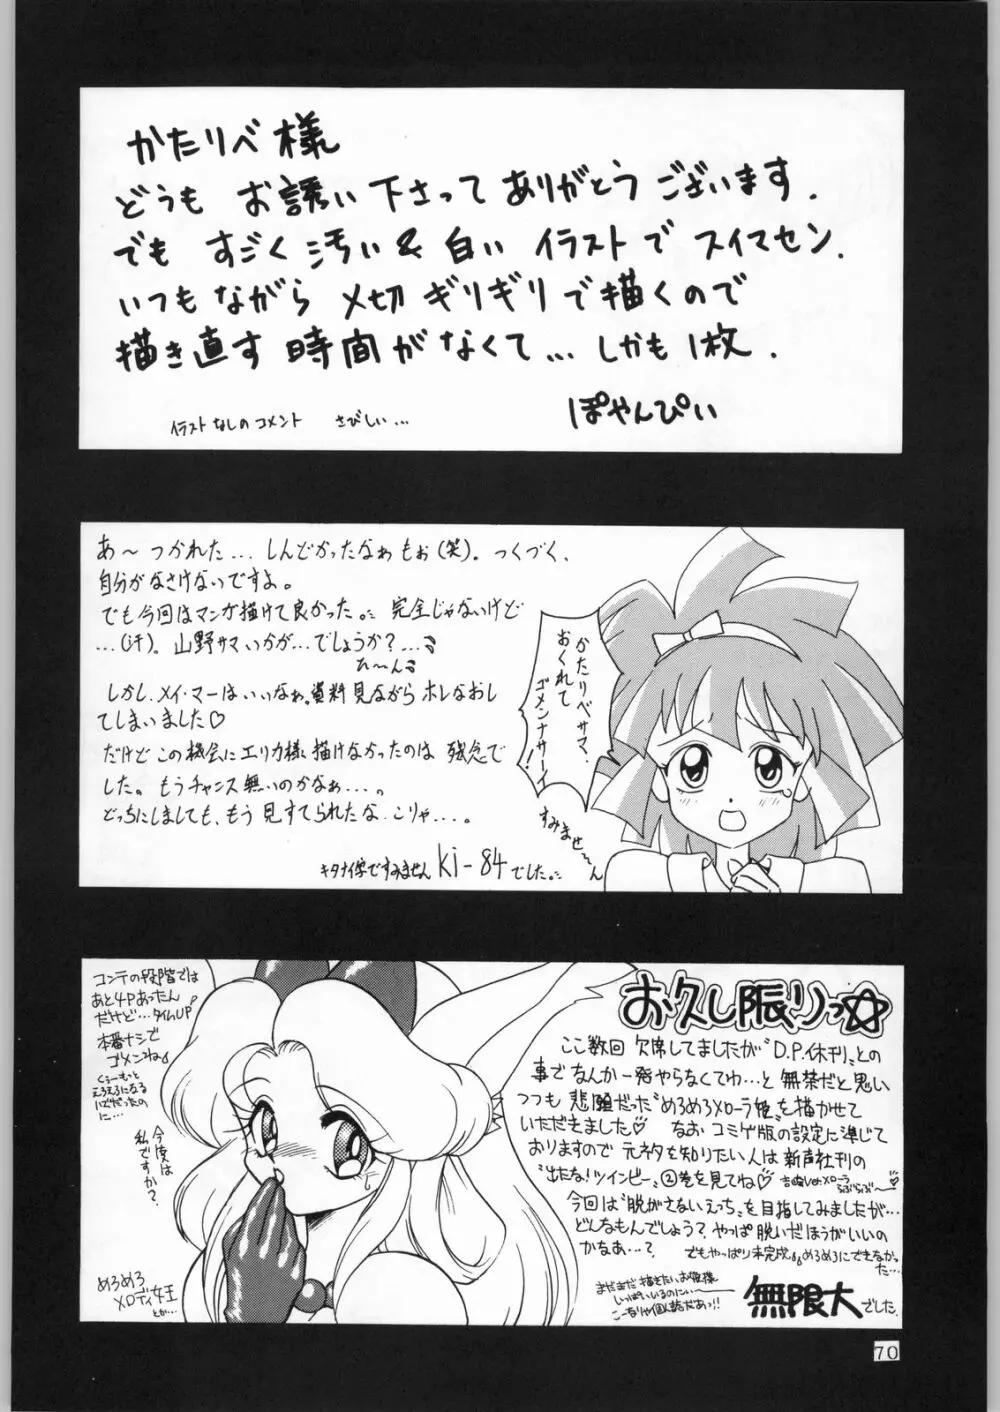 かたりべ様
どうも お誘い下さって ありがとうございます.
でも すごく 汚い & 白い イラストで スイマセン.
いつもながら 〆切 ギリギリで描くので
描き直す 時間がなくて... しかも 1枚.
ぽやんぴい
イラストなしのコメント さびしい...
あ～ つかれた... しんどかったなぁもぉ(笑)。つくづく、
自分がなさけないですよ。
でも今回はマンガ描けて良かった。完全じゃないけど
...(汗)。山野サマいかが...でしょうか?...
ひ～ん
しかし、メイ・マーはいいなぁ。資料見ながら ホレなおし
てしまいました♡
だけど この機会に エリカ様 描けなかったのは 残念で
した。もうチャンス無いのかなぁ...。
どっちにしましても、もう見すてられたな、こりゃ...。
キタナイ字ですみません ki-84でした。
かたりベサマ、
おくれて
ゴメンナサーイ!
すみませ～ん
お久し振りっ☆
ここ数回 欠席してましたが"D.P.休刊"との
事で なんか一発やらなくてわ...と 無茶だと思い
つつも 悲願だった"めろめろメローラ姫"を描かせて
いただきました♡ なお コミゲ版の設定に準じて
おりますので 元ネタを知りたい人は 新声社刊の
"出たな!ツインビー"②巻を見てね♡
今回は"脱がさないえっち"を目指してみましたが...
どんなもんでしょう? やっぱ脱いだほうがいいの
かなあ...?
でもやっぱり未完成 めろめろにできなかっ
た...
まだまだ描きたいお姫様
いっぱいいるのにい～
無限大でした.
コンテの段階では
あと4Pあったん
だけど...タイムUP
本番ナシで
ゴメンね
くぅーもっと
えろえろになる
ハズだったの
に...
今度は
私ですか?
めろめろ
メロディ女王
とか...
70